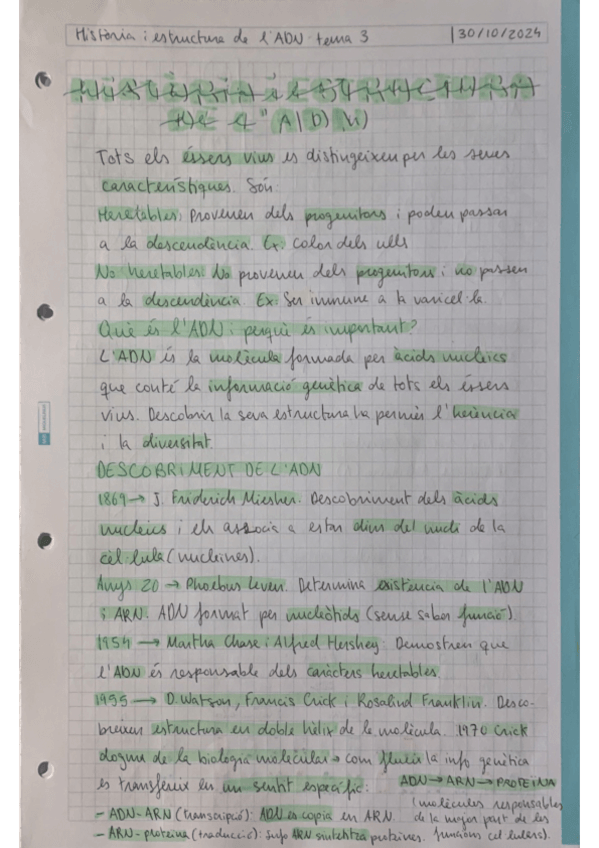 Història i estructura de l'ADN tema 3 30/10/2024
HISTÒRIA i ESTRUCTURA
DE L'ADN
Tots els éssers vius es distingeixen per les seves
característiques. Són:
Heretables: Provenen dels progenitors i poden passar
a la descendència. Ex: color dels ulls
No heretables: No provenen dels progenitors i no passen
a la descendència. Ex: Ser immune a la varicel·la.
Què és l'ADN i perquè és important?
L'ADN és la molècula formada per àcids nucleics
que conté la informació genètica de tots els éssers
vius. Descobrir la seva estructura ha permès l'herència
i la diversitat.
DESCOBRIMENT DE L'ADN
1869 → J. Friderich Miesher. Descobriment dels àcids
nucleics i els associa a estar dins del nucli de la
cèl·lula (nucleïnes).
Anys 20 → Phoebus Leven. Determina existència de l'ADN
i ARN. ADN format per nucleòtids (sense saber funció).
1954 → Martha Chase i Alfred Hershey. Demostren que
l'ADN és responsable dels caràcters heretables.
1955 → D. Watson, Francis Crick i Rosalind Franklin. Desco-
breixen estructura en doble hèlix de la molècula. 1970 Crick
dogma de la biologia molècular → com flueix la info genètica
es transfereix en un sentit específic: ADN → ARN → PROTEÏNA
(molècules responsables
- ADN-ARN (transcripció): ADN es copia en ARN. de la major part de les
- ARN-proteïna (traducció): info ARN sintetitza proteïnes. funcions cel·lulars).